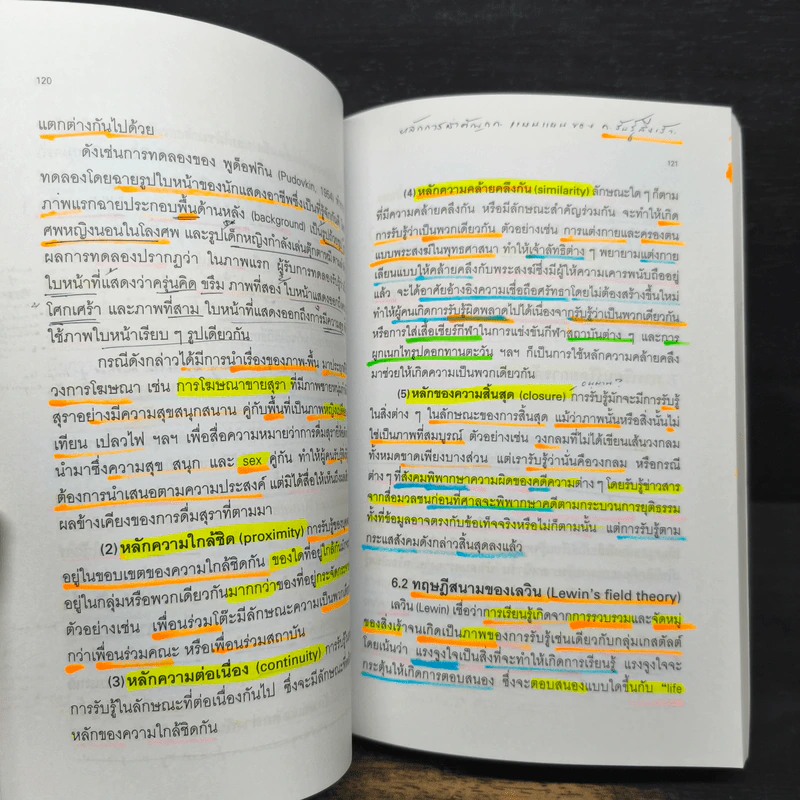 120
แตกต่างกันไปด้วย
ดังเช่นการทดลองของ พูด็อฟกิน (Pudovkin, 1954)
ทดลองโดยฉายรูปใบหน้าของนักแสดงอาชีพซึ่งเป็นที่รู้จัก
ภาพแรกฉายประกอบพื้นด้านหลัง (background) เป็น
ศพหญิงนอนในโลงศพ และรูปเด็กหญิงกำลังเล่นตุ๊กตาหมี
ผลการทดลองปรากฏว่า ในภาพแรก ผู้รับการทดลอง
ใบหน้าที่แสดงว่าครุ่นคิด ขรึม ภาพที่สอง ใบหน้าแสดงออกถึง
โศกเศร้า และภาพที่สาม ใบหน้าที่แสดงออกถึงการมีความสุข
ใช้ภาพใบหน้าเรียบ ๆ รูปเดียวกัน
กรณีดังกล่าวได้มีการนำเรื่องของภาพ-พื้น มา
วงการโฆษณา เช่น การโฆษณาขายสุรา ที่มีภาพชายหนุ่ม
สุราอย่างมีความสุขสนุกสนาน คู่กับพื้นที่เป็นภาพ
เทียน เปลวไฟ ฯลฯ เพื่อสื่อความหมายว่าการดื่มสุรา
นำมาซึ่งความสุข สนุก และ sex คู่กัน ทำให้ผู้คน
ต้องการนำเสนอตามความประสงค์ แต่มิได้สื่อให้เห็นถึง
ผลข้างเคียงของการดื่มสุราที่ตามมา
(2) หลักความใกล้ชิด (proximity) การรับรู้ของ
อยู่ในขอบเขตของความใกล้ชิดกัน ของใดที่อยู่ใกล้กัน
อยู่ในกลุ่มหรือพวกเดียวกันมากกว่าของที่อยู่กระจัดกระจาย
ตัวอย่างเช่น เพื่อนร่วมโต๊ะมีลักษณะความเป็นพวกเดียว
กว่าเพื่อนร่วมคณะ หรือเพื่อนร่วมสถาบัน
(3) หลักความต่อเนื่อง (continuity) การรับรู้
การรับรู้ในลักษณะที่ต่อเนื่องกันไป ซึ่งจะมีลักษณะ
หลักของความใกล้ชิดกัน
121
(4) หลักความคล้ายคลึงกัน (similarity) ลักษณะใด ๆ ก็ตาม
ที่มีความคล้ายคลึงกัน หรือมีลักษณะสำคัญร่วมกัน จะทำให้เกิด
การรับรู้ว่าเป็นพวกเดียวกัน ตัวอย่างเช่น การแต่งกายและครองตน
แบบพระสงฆ์ในพุทธศาสนา ทำให้เจ้าลัทธิต่าง ๆ พยายามแต่งกาย
เลียนแบบให้คล้ายคลึงกับพระสงฆ์ซึ่งมีผู้ให้ความเคารพนับถืออยู่
แล้ว จะได้อาศัยอ้างอิงความเชื่อถือศรัทธาโดยไม่ต้องสร้างขึ้นใหม่
ทำให้ผู้คนเกิดการรับรู้ผิดพลาดไปได้เนื่องจากรับรู้ว่าเป็นพวกเดียวกัน
หรือการใส่เสื้อเชียร์กีฬาในการแข่งขันกีฬาสถาบันต่าง ๆ และการ
ผูกเนกไทรูปดอกทานตะวัน ฯลฯ ก็เป็นการใช้หลักความคล้ายคลึง
มาช่วยให้เกิดความเป็นพวกเดียวกัน
(5) หลักของความสิ้นสุด (closure) การรับรู้มักจะมีการรับรู้
ในสิ่งต่าง ๆ ในลักษณะของการสิ้นสุด แม้ว่าภาพนั้นหรือสิ่งนั้นไม่
ใช่เป็นภาพที่สมบูรณ์ ตัวอย่างเช่น วงกลมที่ไม่ได้เขียนเส้นวงกลม
ทั้งหมดขาดเพียงบางส่วน แต่เรารับรู้ว่านั่นคือวงกลม หรือกรณี
ต่าง ๆ ที่สังคมพิพากษาความผิดของคดีความต่าง ๆ โดยรับรู้ข่าวสาร
จากสื่อมวลชนก่อนที่ศาลจะพิพากษาคดีตามกระบวนการยุติธรรม
ทั้งที่ข้อมูลอาจตรงกับข้อเท็จจริงหรือไม่ก็ตามนั้น แต่การรับรู้ตาม
กระแสสังคมดังกล่าวสิ้นสุดลงแล้ว
6.2 ทฤษฎีสนามของเลวิน (Lewin's field theory)
เลวิน (Lewin) เชื่อว่าการเรียนรู้เกิดจากการรวบรวมและจัดหมู่
ของสิ่งเร้าจนเกิดเป็นภาพของการรับรู้เช่นเดียวกับกลุ่มเกสตัลต์
โดยเน้นว่า แรงจูงใจเป็นสิ่งที่จะทำให้เกิดการเรียนรู้ แรงจูงใจจะ
กระตุ้นให้เกิดการตอบสนอง ซึ่งจะตอบสนองแบบใดขึ้นกับ "life